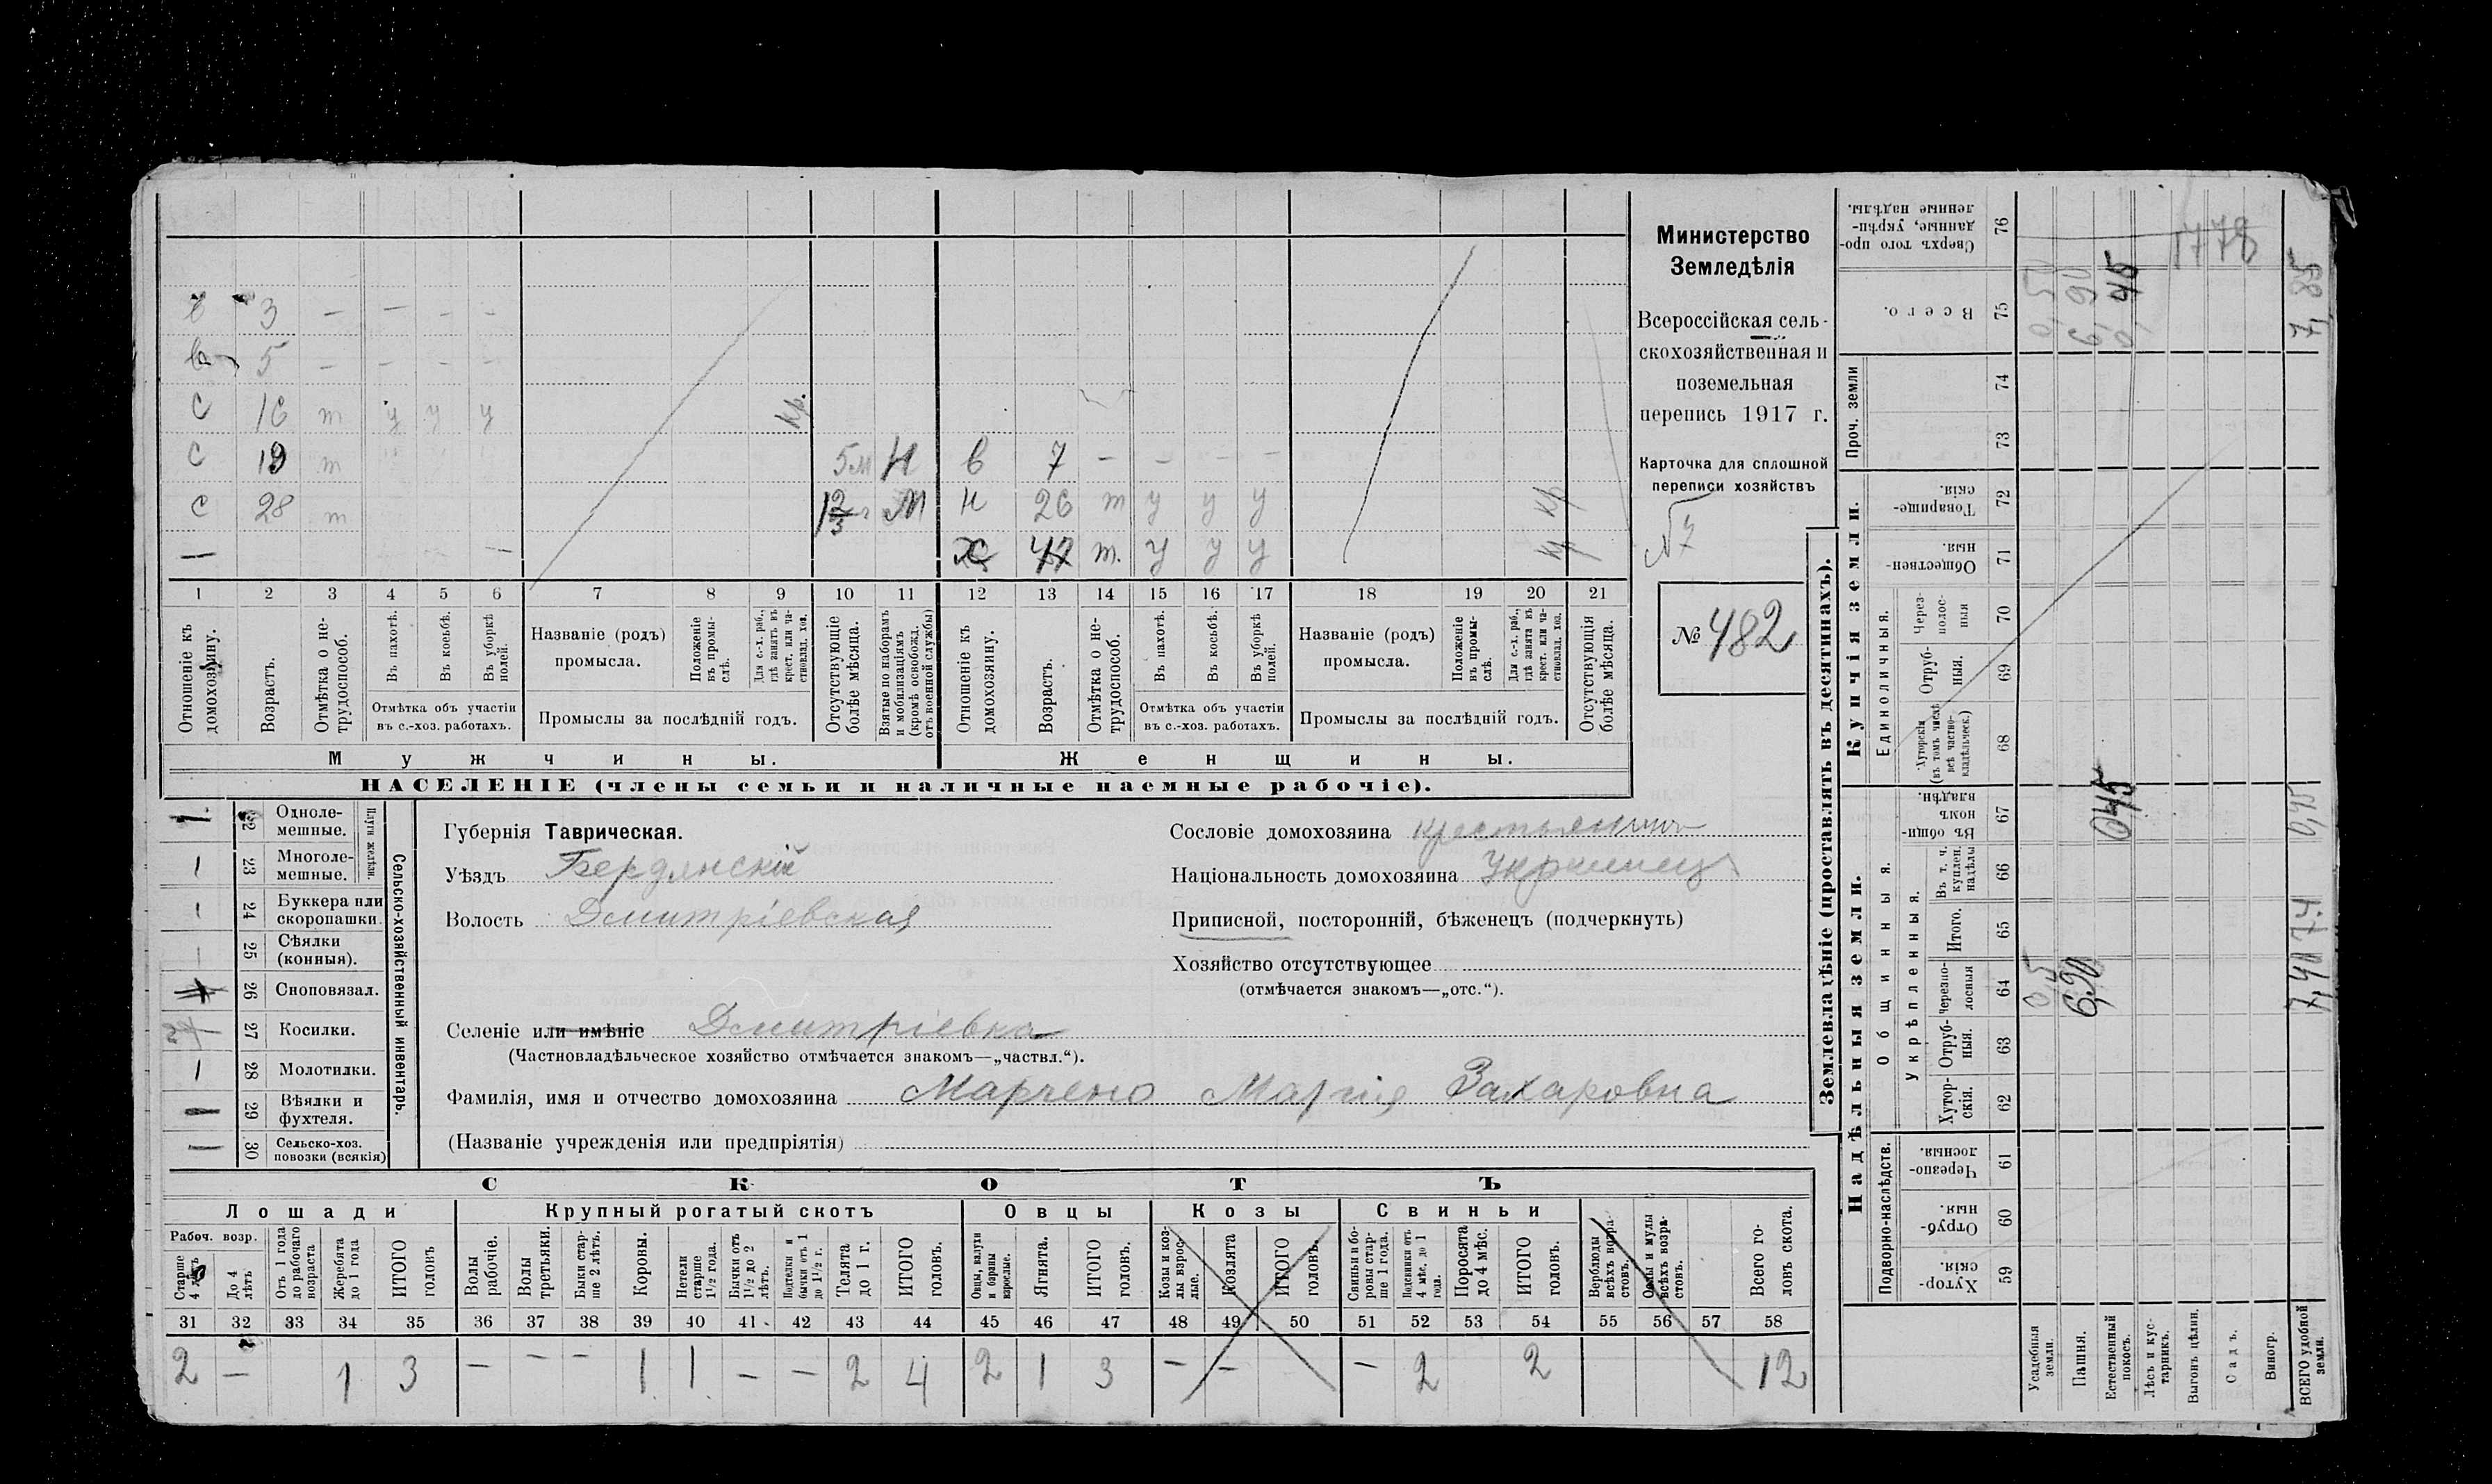 в 3 — — — —
5 — — — —
С 16 т у у у кр.
С 19 т 5м в 7 — — — —
С 28 т М 26 т у у у кр
— 47 т. у у у кр
1 2 3 4 5 6 7 8 9 10 11 12 13 14 15 16 17 18 19 20 21
Отношеніе къ домохозяину.
Возрастъ.
Отмѣтка о не-
трудоспособ.
Въ пахотѣ.
Въ косьбѣ.
Въ уборкѣ
полей.
Отмѣтка объ участіи
въ с.-хоз. работахъ.
Названіе (родъ)
промысла.
Положеніе
въ промы-
слѣ.
Для с.-х. раб.,
гдѣ занятъ въ
крест. или ча-
стновлад. хоз.
Промыслы за послѣдній годъ.
Отсутствующіе
болѣе мѣсяца.
Взятые по наборамъ
и мобилизаціямъ
(кромѣ освобожд.
отъ военной службы)
Отношеніе къ
домохозяину.
Возрастъ.
Отмѣтка о не-
трудоспособ.
Въ пахотѣ.
Въ косьбѣ.
Въ уборкѣ
полей.
Отмѣтка объ участіи
въ с.-хоз. работахъ.
Названіе (родъ)
промысла.
Положеніе
въ промы-
слѣ.
Для с.-х. раб.,
гдѣ занята въ
крест. или ча-
стновлад. хоз.
Промыслы за послѣдній годъ.
Отсутствующія
болѣе мѣсяца.
Мужчины.
Женщины.
НАСЕЛЕНІЕ (члены семьи и наличные наемные рабочіе).
Министерство
Земледѣлія
Всероссійская сель-
скохозяйственная и
поземельная
перепись 1917 г.
Карточка для сплошной
переписи хозяйствъ
№ 482
22 Одноле-
мешные.
23 Многоле-
мешные.
Плуги желѣзн.
24 Буккера или
скоропашки.
25 Сѣялки
(конныя).
26 Сноповязал.
27 Косилки.
28 Молотилки.
29 Вѣялки и
фухтеля.
30 Сельско-хоз.
повозки (всякія)
Сельско-хозяйственный инвентарь.
Губернія Таврическая.
Уѣздъ Бердянскій
Волость Дмитріевская
Сословіе домохозяина крестьянинъ
Національность домохозяина Украинец
Приписной, посторонній, бѣженецъ (подчеркнуть)
Хозяйство отсутствующее
(отмѣчается знакомъ—„отс.“).
Селеніе или имѣніе Дмитріевка
(Частновладѣльческое хозяйство отмѣчается знакомъ—„частвл.“).
Фамилія, имя и отчество домохозяина Марченко Марія Захаровна
(Названіе учрежденія или предпріятія)
СКОТЪ
Лошади
Крупный рогатый скотъ
Овцы
Козы
Свиньи
Рабоч. возр.
Старше
4 лѣтъ
До 4
лѣтъ
Отъ 1 года
до рабочаго
возраста
Жеребята
до 1 года
ИТОГО
головъ
Волы
рабочіе.
Волы
третьяки.
Быки стар-
ше 2 лѣтъ.
Коровы.
Нетели
старше
1½ года.
Бычки отъ
1½ до 2
лѣтъ.
Подтелки и
бычки отъ 1
до 1½ г.
Телята
до 1 г.
ИТОГО
головъ.
Овцы, валухи
и бараны
взрослые.
Ягнята.
ИТОГО
головъ.
Козы и коз-
лы взрос-
лые.
Козлята
ИТОГО
головъ.
Свиньи и бо-
ровы стар-
ше 1 года.
Подсвинки отъ
4 мѣс. до 1
года.
Поросята
до 4 мѣс.
ИТОГО
головъ.
Верблюды
всѣхъ возра-
стовъ.
Ослы и мулы
всѣхъ возра-
стовъ.
Всего го-
ловъ скота.
31 32 33 34 35 36 37 38 39 40 41 42 43 44 45 46 47 48 49 50 51 52 53 54 55 56 57 58
2 — 1 3 — — — 1 1 — — 2 4 2 1 3 — — — 2 2 12
Землевладѣніе (проставлять въ десятинахъ).
Надѣльныя земли.
Купчія земли.
Проч. земли
Подворно-наслѣдств.
Общинныя.
Укрѣпленныя.
Единоличныя.
Хутор-
скія. 59
Отруб-
ныя. 60
Черезпо-
лосныя. 61
Хутор-
скія. 62
Отруб-
ныя. 63
Черезпо-
лосныя 64
Итого. 65
Въ т. ч.
куплен.
надѣлы 66
Въ общин-
номъ
владѣн. 67
Хуторскія
(въ томъ числѣ
всѣ частно-
владѣльческ.) 68
Отруб-
ныя. 69
Через-
полос-
ныя 70
Обществен-
ныя. 71
Товарище-
скія. 72
73
74
Всего. 75
Сверхъ того про-
данные, укрѣп-
ленные надѣлы. 76
Усадебныя
земли.
Пашня.
Естественный
покосъ.
Лѣсъ и кус-
тарникъ.
Выгонъ цѣлин.
Садъ.
Виногр.
ВСЕГО удобной
земли.
0,5
6,90
045
7,40
0,45
0,50
6,90
45
7,85
1778